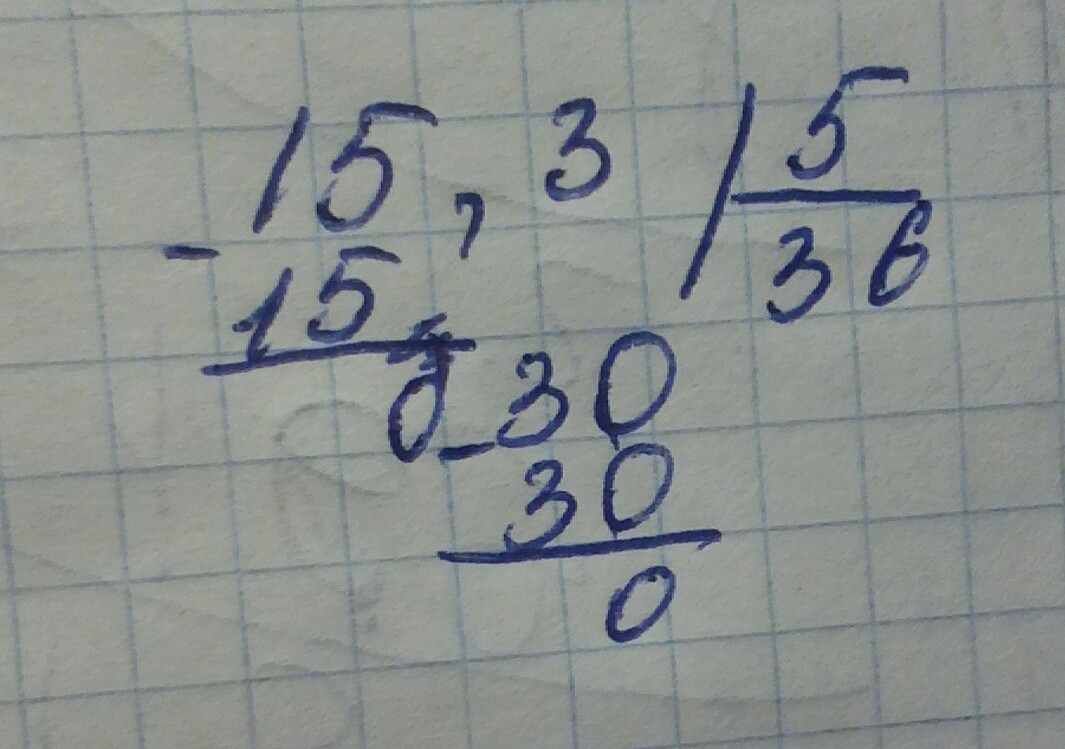 15,3 5
- 15, 36
0 - 30
30
0